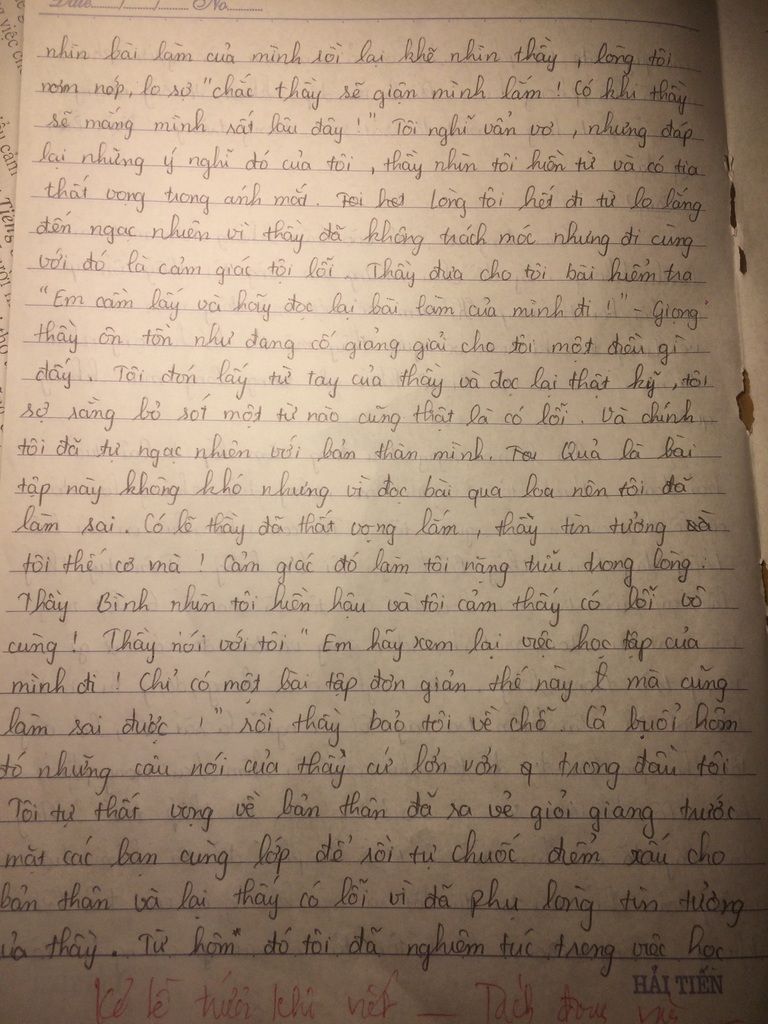 Date / / No
nhìn bài làm của mình rồi lại khẽ nhìn thầy, lòng tôi
nơm nớp, lo sợ "chắc thầy sẽ giận mình lắm! Có khi thầy
sẽ mắng mình rất lâu đây!" Tôi nghĩ vẩn vơ, nhưng đáp
lại những ý nghĩ đó của tôi, thầy nhìn tôi hiền từ và có tia
thất vọng trong ánh mắt. Lòng tôi hết đi từ lo lắng
đến ngạc nhiên vì thầy đã không trách móc nhưng đi cùng
với đó là cảm giác tội lỗi. Thầy đưa cho tôi bài kiểm tra
"Em cầm lấy và hãy đọc lại bài làm của mình đi!" - Giọng
thầy ôn tồn như đang cố giảng giải cho tôi một điều gì
đấy. Tôi đón lấy từ tay của thầy và đọc lại thật kỹ, tôi
sợ rằng bỏ sót một từ nào cũng thật là có lỗi. Và chính
tôi đã tự ngạc nhiên với bản thân mình. Quả là bài
tập này không khó nhưng vì đọc bài qua loa nên tôi đã
làm sai. Có lẽ thầy đã thất vọng lắm, thầy tin tưởng
tôi thế cơ mà! Cảm giác đó làm tôi nặng trĩu trong lòng.
Thầy Bình nhìn tôi hiền hậu và tôi cảm thấy có lỗi vô
cùng! Thầy nói với tôi "Em hãy xem lại việc học tập của
mình đi! Chỉ có một bài tập đơn giản thế này mà cũng
làm sai được!" rồi thầy bảo tôi về chỗ. Cả buổi hôm
đó những câu nói của thầy cứ lởn vởn ở trong đầu tôi
Tôi tự thất vọng về bản thân đã ra vẻ giỏi giang trước
mặt các bạn cùng lớp để rồi tự chuốc điểm xấu cho
bản thân và lại thấy có lỗi vì đã phụ lòng tin tưởng
của thầy. Từ hôm đó tôi đã nghiêm túc trong việc học
HẢI TIẾN
Kẻ lề trước khi viết — Tách đoạn